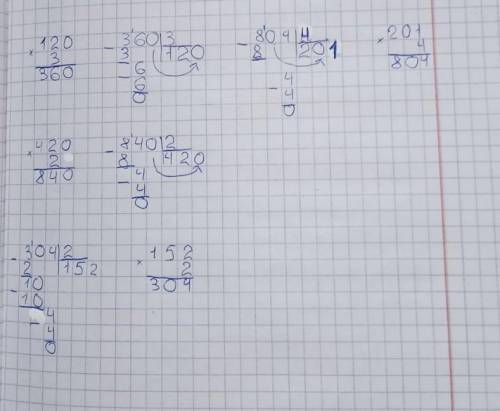 ×120 -3'60|3 -8'04|4 ×201
3 3 |120 8 |201 4
360 -6 4 804
6 -4
0 0
×420 -8'40|2
2 8 |420
840 -4
4
0
-3'04|2 ×152
2 |152 2
10 304
-10
-4
4
0